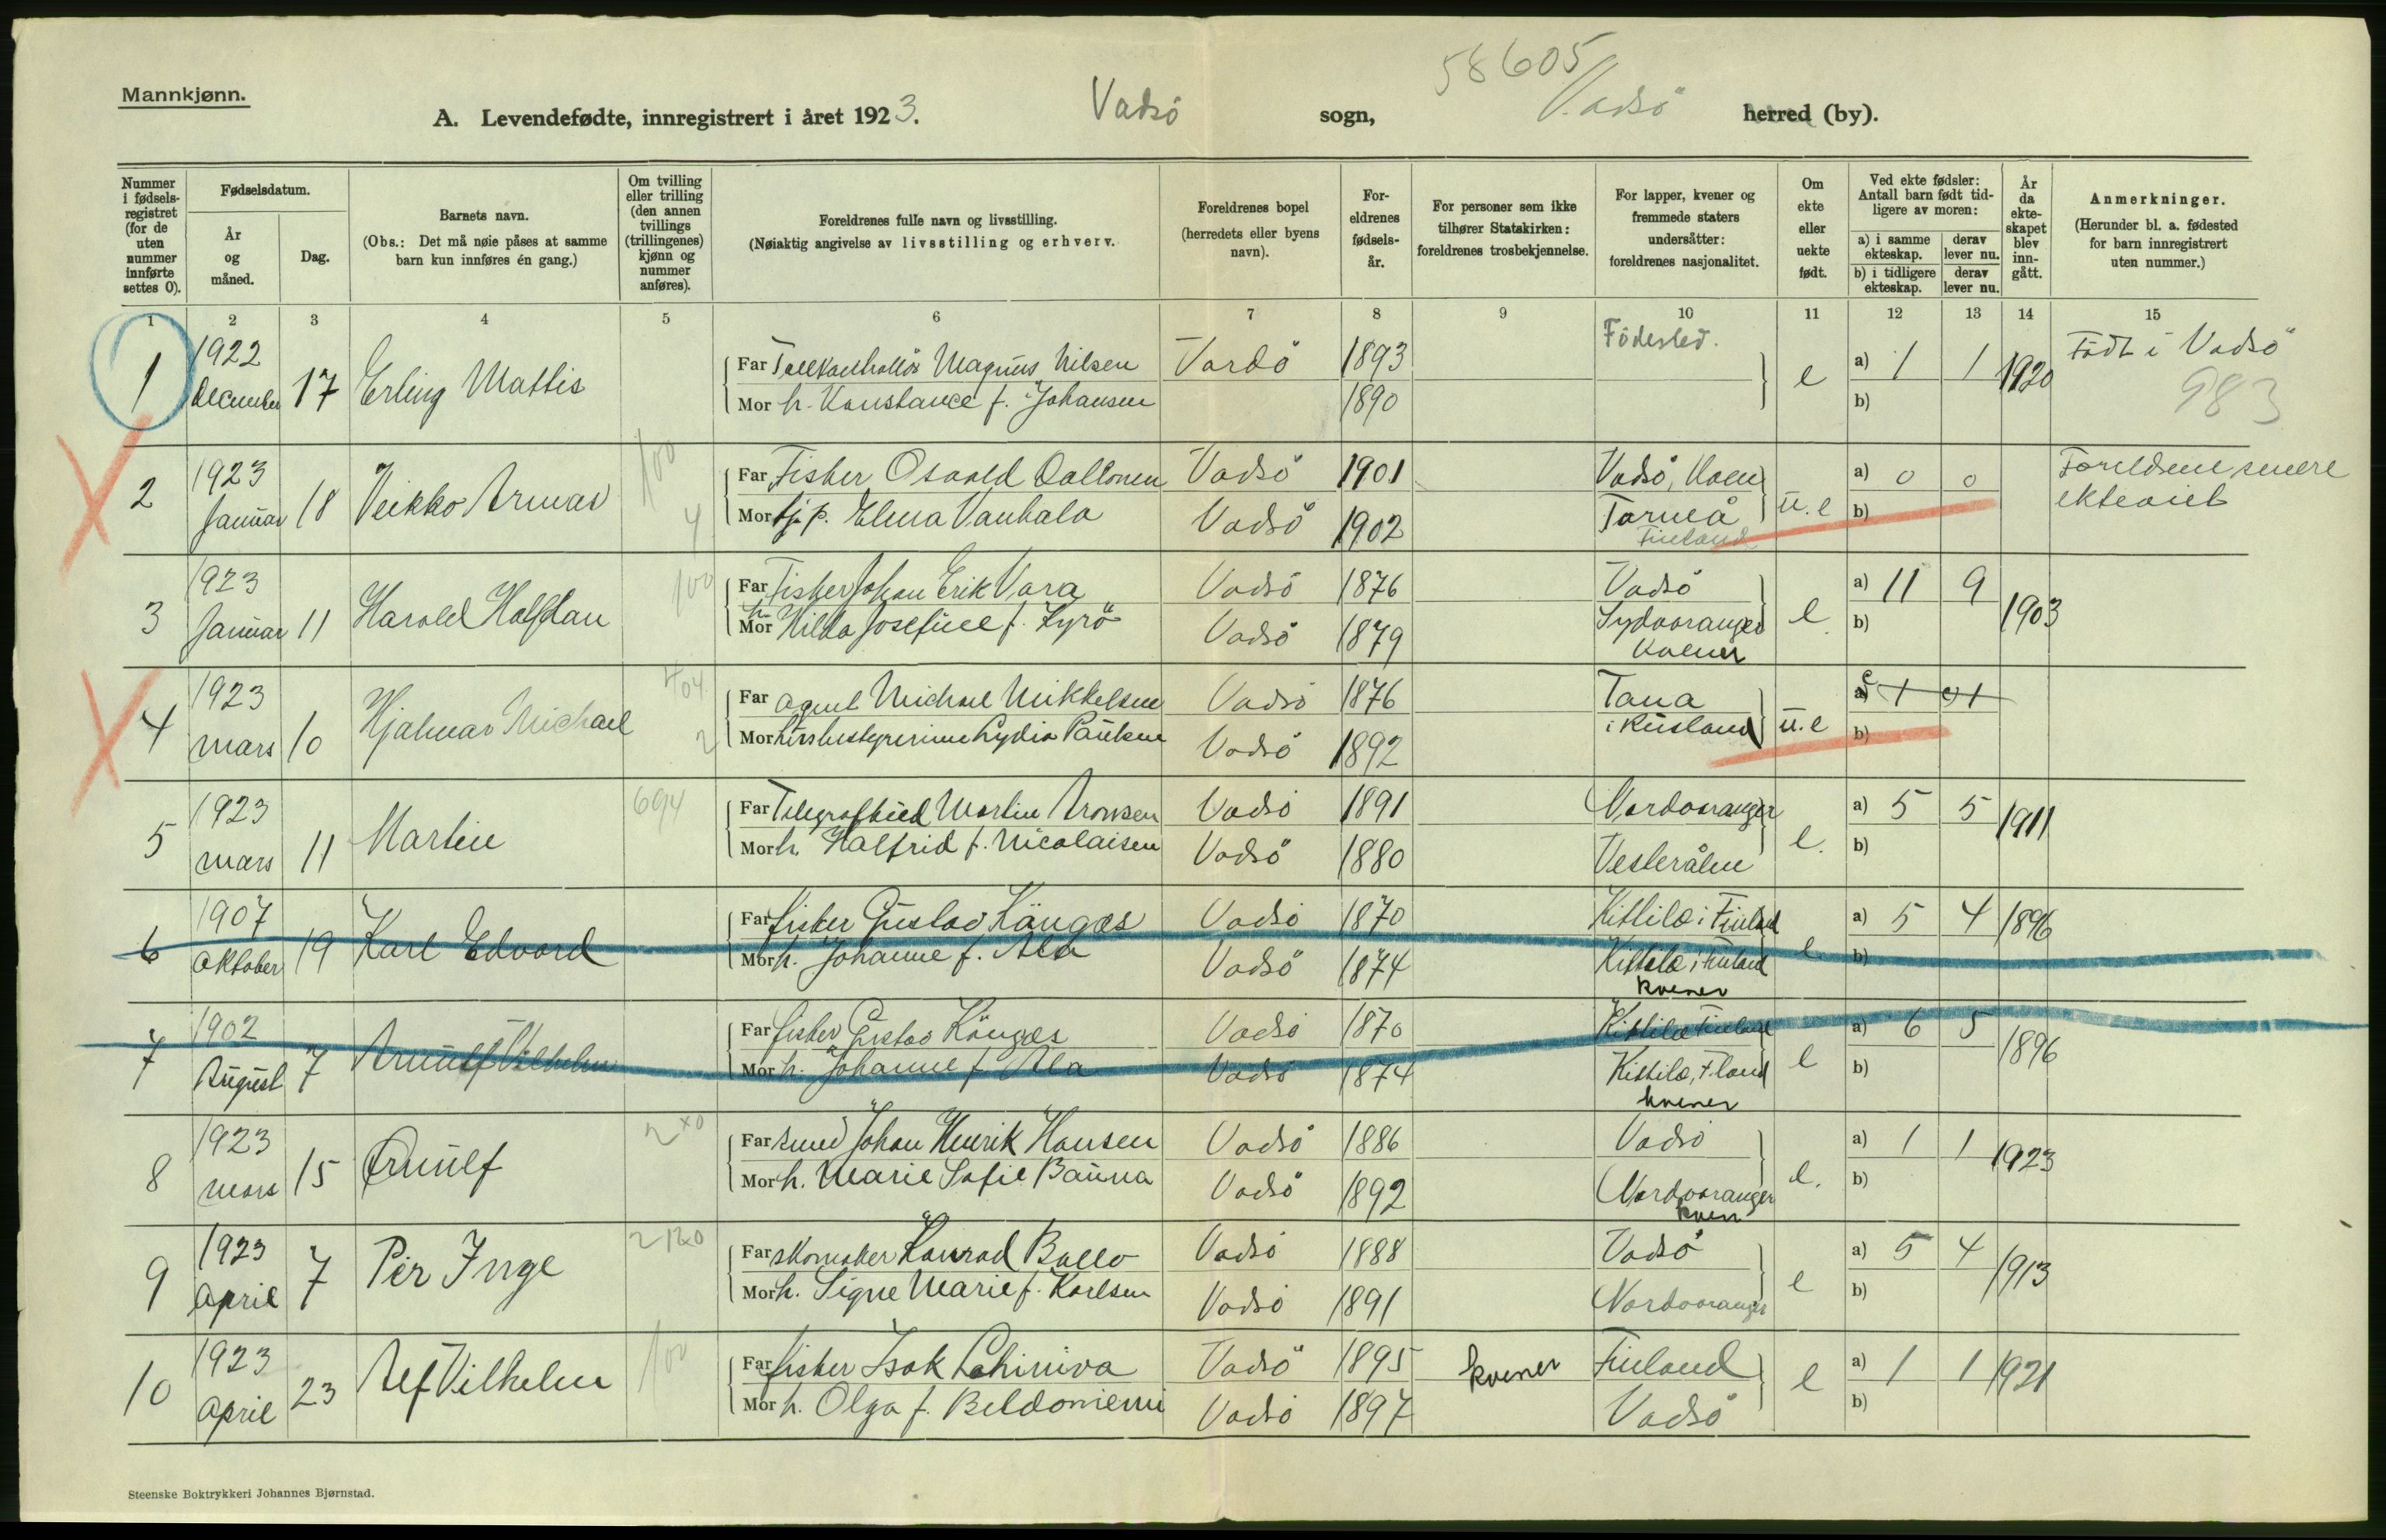 Mannkjønn.
58605
A. Levendefødte, innregistrert i året 1923. Vadsö sogn, Vadsö herred (by).
Nummer i fødselsregistret (for de uten nummer innførte settes 0).
Fødselsdatum.
År og måned.
Dag.
Barnets navn.
(Obs.: Det må nøie påses at samme barn kun innføres én gang.)
Om tvilling eller trilling (den annen tvillings (trillingenes) kjønn og nummer anføres).
Foreldrenes fulle navn og livsstilling.
(Nøiaktig angivelse av livsstilling og erhverv.
Foreldrenes bopel (herredets eller byens navn).
Foreldrenes fødselsår.
For personer som ikke tilhører Statskirken: foreldrenes trosbekjennelse.
For lapper, kvener og fremmede staters undersåtter: foreldrenes nasjonalitet.
Om ekte eller uekte født.
Ved ekte fødsler: Antall barn født tidligere av moren:
a) i samme ekteskap. derav lever nu.
b) i tidligere ekteskap. derav lever nu.
År da ekteskapet blev inngått.
Anmerkninger.
(Herunder bl. a. fødested for barn innregistrert uten nummer.)
1 2 3 4 5 6 7 8 9 10 11 12 13 14 15
Födested.
1 1922 december 17 Erling Mattis
Far Magnus Nilsen Vardö 1893 e a) 1 1 1920 Födt i Vadsö
Mor h. Konstance f. Johansen 1890 b) 983
2 1923 Januar 18 Veikko Armas 100
Far Fisker Osvald Aaltonen Vadsö 1901 Vadsö, Kven u.e a) 0 0 Foreldrene senere
Mor tj. p. Elma Vanhala Vadsö 1902 Torneå b) ekteviet
4 Finland
3 1923 Januar 11 Harald Halfdan 100
Far Fisker Johan Erik Vara Vadsö 1876 Vadsö e a) 11 9 1903
Mor h. Hilda Josefine f. Kyrö Vadsö 1879 Sydvaranger b)
Kvener
4 1923 mars 10 Hjalmar Michael 404
Far agent Michael Mikkelsen Vadsö 1876 Tana u.e a) 1
Mor husbestyrerinne Lydia Paulsen Vadsö 1892 i Rusland b)
2
5 1923 mars 11 Martin 694
Far Telegrafbud Martin Aronsen Vadsö 1891 Nordvaranger e. a) 5 5 1911
Mor h. Halfrid f. Nicolaisen Vadsö 1880 Vesterålen b)
6 1907 Oktober 19 Karl Edvard
Far fisker Gustav Kängæs Vadsö 1870 Kittilæ i Finland e a) 5 4 1896
Mor h. Johanne f. Ala Vadsö 1874 Kittilæ i Finland b)
kvener
7 1902 August 7 Arnulf Vilhelm
Far fisker Gustav Kängæs Vadsö 1870 Kittilæ Finland e a) 6 5 1896
Mor h. Johanne f. Ala Vadsö 1874 Kittilæ, F.land b)
kvener
8 1923 mars 15 Ørnulf
Far smed Johan Henrik Hansen Vadsö 1886 Vadsö e. a) 1 1 1923
Mor h. Marie Sofie Banna Vadsö 1892 Nordvaranger b)
kven
9 1923 April 7 Per Inge
Far skomaker Konrad Ballo Vadsö 1888 Vadsö e a) 5 4 1913
Mor h. Signe Marie f. Karlsen Vadsö 1891 Nordvaranger b)
10 1923 April 23 Alf Vilhelm 100
Far fisker Isak Lahiniva Vadsö 1895 kvener Finland e a) 1 1 1921
Mor h. Olga f. Beldoniemi Vadsö 1897 Vadsö b)
Steenske Boktrykkeri Johannes Bjørnstad.